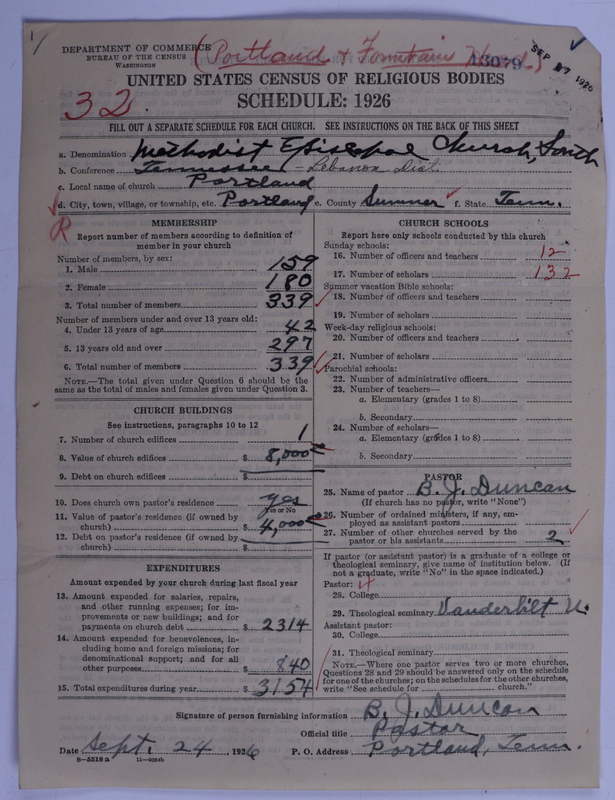 DEPARTMENT OF COMMERCE
BUREAU OF THE CENSUS
WASHINGTON
(Portland & Fountain Head)
13079
SEP 27 1926
UNITED STATES CENSUS OF RELIGIOUS BODIES
SCHEDULE: 1926
32
FILL OUT A SEPARATE SCHEDULE FOR EACH CHURCH. SEE INSTRUCTIONS ON THE BACK OF THIS SHEET
a. Denomination Methodist Episcopal Church, South
b. Conference Tennessee - Lebanon Dist.
c. Local name of church Portland
d. City, town, village, or township, etc. Portland e. County Sumner f. State Tenn.
R
MEMBERSHIP
Report number of members according to definition of member in your church
Number of members, by sex:
1. Male 159
2. Female 180
3. Total number of members 339
Number of members under and over 13 years old:
4. Under 13 years of age 42
5. 13 years old and over 297
6. Total number of members 339
NOTE.—The total given under Question 6 should be the same as the total of males and females given under Question 3.
CHURCH BUILDINGS
See instructions, paragraphs 10 to 12
7. Number of church edifices 1
8. Value of church edifices $ 8,000
9. Debt on church edifices $
10. Does church own pastor's residence yes
Yes or No
11. Value of pastor's residence (if owned by church) $ 4,000
12. Debt on pastor's residence (if owned by church) $
EXPENDITURES
Amount expended by your church during last fiscal year
13. Amount expended for salaries, repairs, and other running expenses; for improvements or new buildings; and for payments on church debt $ 2314
14. Amount expended for benevolences, including home and foreign missions; for denominational support; and for all other purposes $ 840
15. Total expenditures during year $ 3154
CHURCH SCHOOLS
Report here only schools conducted by this church
Sunday schools:
16. Number of officers and teachers 12
17. Number of scholars 132
Summer vacation Bible schools:
18. Number of officers and teachers
19. Number of scholars
Week-day religious schools:
20. Number of officers and teachers
21. Number of scholars
Parochial schools:
22. Number of administrative officers
23. Number of teachers—
a. Elementary (grades 1 to 8)
b. Secondary
24. Number of scholars—
a. Elementary (grades 1 to 8)
b. Secondary
PASTOR
25. Name of pastor B. J. Duncan
(If church has no pastor, write "None")
26. Number of ordained ministers, if any, employed as assistant pastors
27. Number of other churches served by the pastor or his assistants 2
If pastor (or assistant pastor) is a graduate of a college or theological seminary, give name of institution below. (If not a graduate, write "No" in the space indicated.)
Pastor: 4
28. College
29. Theological seminary Vanderbilt U.
Assistant pastor:
30. College
31. Theological seminary
NOTE.—Where one pastor serves two or more churches, Questions 28 and 29 should be answered only on the schedule for one of the churches; on the schedules for the other churches, write "See schedule for church."
Signature of person furnishing information B. J. Duncan
Official title Pastor
Date Sept. 24, 1926 P. O. Address Portland, Tenn.
8—5518 a